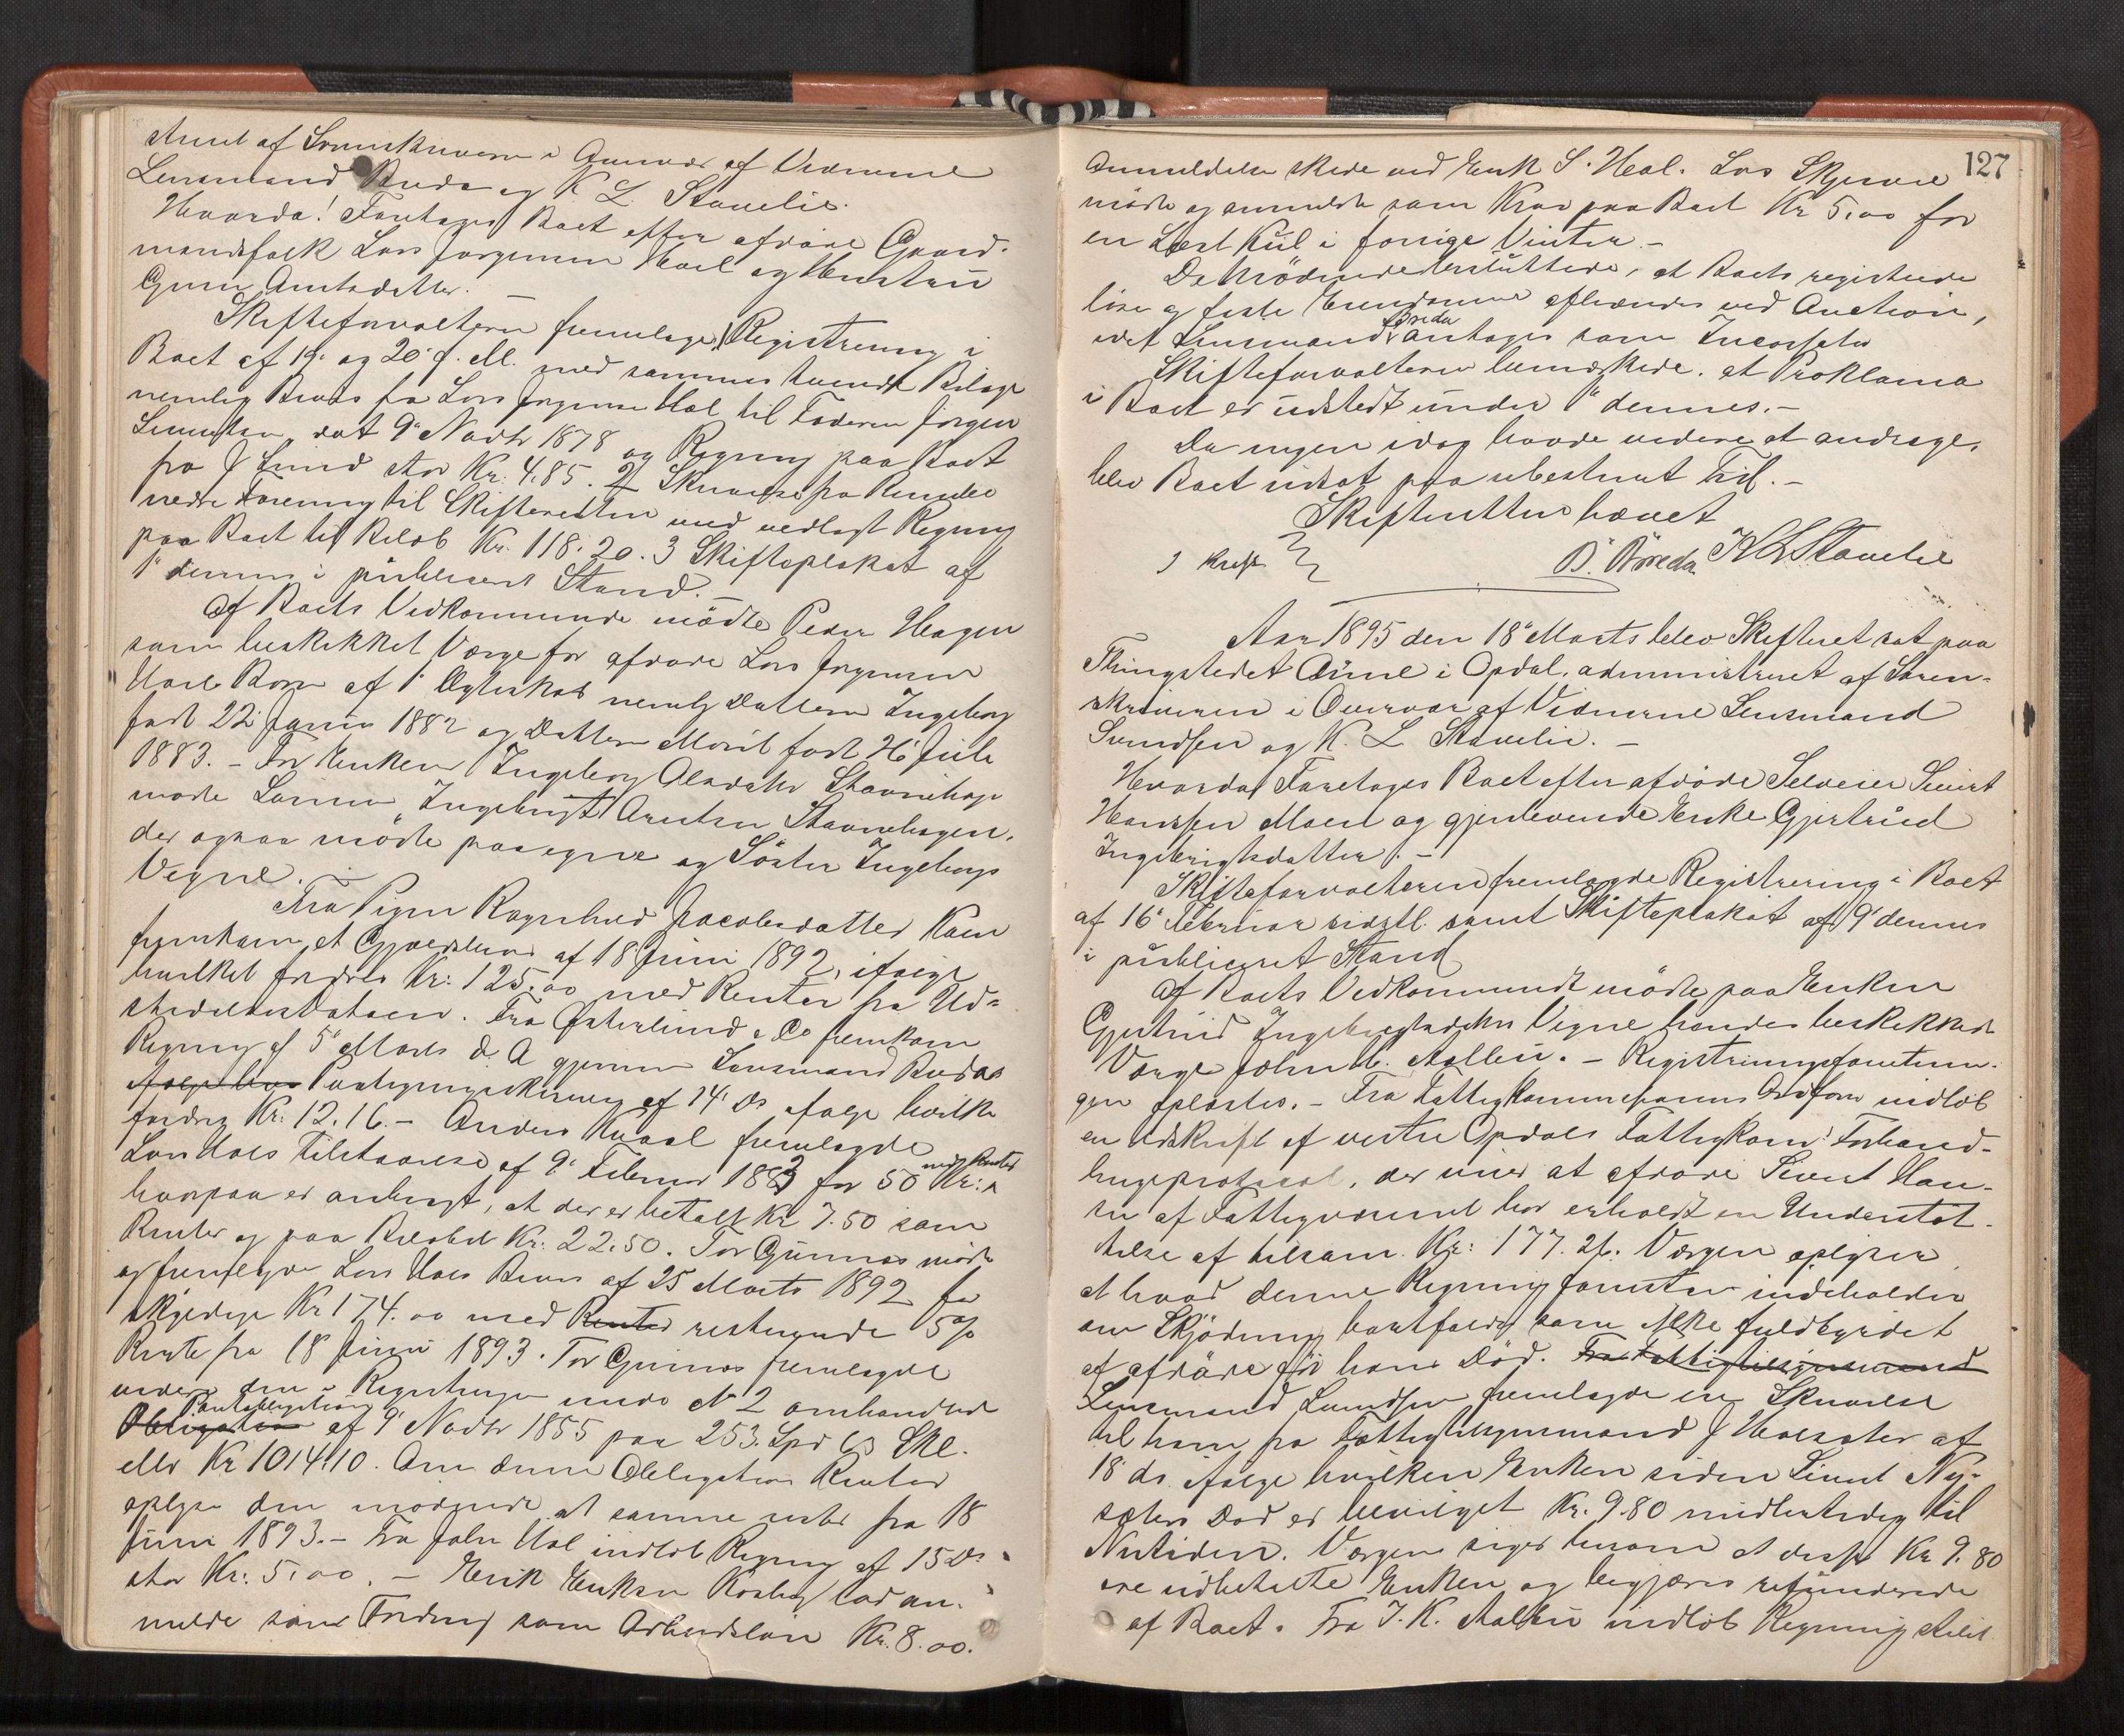 af Sorenskriveren i Overvær af Vidnerne
Lensmand Breda og K L Stavelie.
Hvorda! Foretages Boet efter afdøde Gaard-
mandsfolk Lars Jørgensen Hoel og Hustru
Guru Arntsdatter.
Skifteforvalteren fremlagde Registrering i
Boet af 19' og 20' f. M. med sammes tvende Bilage
nemlig Bevis fra Lars Jørgensen Hol til Faderen Jørgen
dat 9' Novbr 1878 og Regning paa Boet
fra J Lund stor Kr. 4.85. 2) Skrivelse fra
Forening til Skifteretten med vedlagt Regning
paa Boet til Beløb Kr. 118.20. 3 Skifteplakat af
1' dennes i publiceret Stand. –
Af Boets Vedkommende mødte Peder Hagen
som beskikket Værge for afdøde Lars Jørgensen
Hoels Børn af 1' Ægteskab nemlig Datteren Ingeborg
født 22' Juni 1882 og Datteren Marit født 26' Juli
1883. – For Enken Ingeborg Olsdatter Stavnehagen
mødte Sønnen Ingebrigt Arntsen Stavnehagen,
der ogsaa mødte paa egne og Søster Ingeborgs
Vegne. –
Fra Pigen Ragnhild Jacobsdatter Kaen
fremkom et Gjældsbevis af 18 Juni 1892, ifølge
hvilket fordres Kr: 125.00 med Renter fra Ud-
stedelsesdatoen. Fra Østerlund & Co fremkom
Regning af 5' Marts d. A gjennem Lensmand Bredas
Paategningsskrivelse af 14' ds ifølge hvilke
fordres Kr. 12.16. – Anders Kvaal fremlagde
Lars Hoels Tilstaaelse af 9' Februar 1883 for 50 Kr: med Renter
hvorpaa er anbragt, at der er betalt Kr 7.50 som
Renter og paa Beløbet Kr. 22.50. Tor Gunnes mødte
og fremlagde Lars Hoels Bevis af 25 Marts 1892 for
skyldige Kr 174.00 med Renter resterende 5%
Rente fra 18 Juni 1893. Tor Gunnes fremlagde
videre den i Registreringen under N 2 omhandlede
Obligation Pantobligation af 9' Novbr 1855 paa 253 Spd 63 Skl.
eller Kr 1014.10. Om denne Obligations Renter
oplyser den mødende at samme rester fra 18
Juni 1893. – Fra John Hol indløb Regning af 15 ds
stor Kr. 5.00. – Erik Eriksen lod an-
melde som Fordring som Arbeidsløn Kr. 8.00.
127
Anmeldelsen skede ved Enk S. Hoel. Lars Skjerve
mødte og anmeldte som Krav paa Boet Kr 5.00 for
en Læst Kul i forrige Vinter. –
De Mødende besluttede, at Boets registrerede
løse og faste Eiendomme afhændes ved Auction,
idet Lensmand Breda antages som Incassator
Skifteforvalteren bemærkede, at Proklama
i Boet er udstedt under 1' dennes. –
Da ingen idag havde videre at andrage,
blev Boet udsat paa ubestemt Tid. –
Skifteretten hævet
B. Breda K L Stavelie
Aar 1895 den 18' Marts blev Skifteret sat paa
Thingstedet Aune i Opdal, administreret af Soren-
skriveren i Overvær af Vidnerne Lensmand
Svendsen og K. L Stavelie. –
Hvorda! Foretages Boet efter afdøde Selveier Sivert
Hanssen Moen og gjenlevende Enke Gjertrud
Ingebrigtsdatter. –
Skifteforvalteren fremlagde Registrering i Boet
af 16' Februar sidstl. samt Skifteplakat af 9' dennes
i publiceret Stand
Af Boets Vedkommende mødte paa Enken
Gjertrud Ingebrigtsdatters Vegne hendes beskikkede
Værge John Aalbu. – Registreringsforretnin-
gen oplæstes. – Fra Fattigkommissionens Ordfører indløb
en Udskrift af vestre Opdals Fattigkom: Forhand-
lingsprotocol, der viser at afdøde Sivert Han-
sen af Fattigvæsenet har erholdt en Understøt-
telse af tilsam. Kr: 177.26. Værgen oplyser
at hvad denne Regning forøvrigt indeholder
om Skjødning bortfalder som ikke fuldbyrdet
af afdøde før hans Død. Fra Fattigtilsynsmand
Lensmand Svendsen fremlagde en Skrivelse
til ham fra Fattigtilsynsmand J af
18' ds. ifølge hvilken Enken siden Sivert
Død er bevilget Kr. 9.80 midlertidig til
Nutiden. Værgen siger hersom at disse Kr. 9.80
ere udbetalte Enken og begjæres refunderede
af Boet. Fra J. K. Aalbu indløb Regning